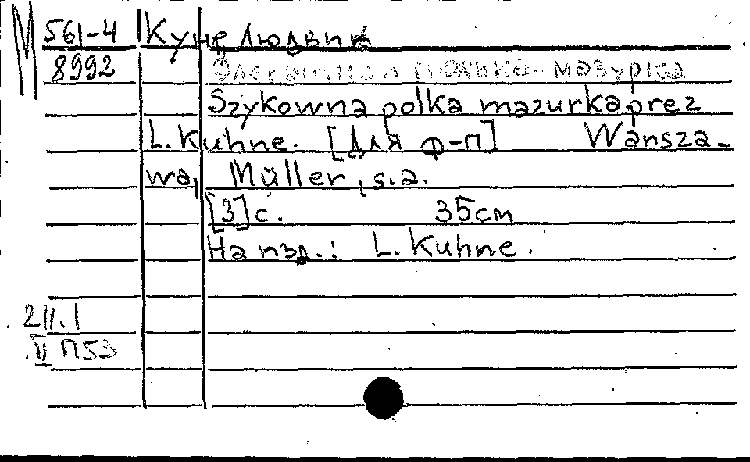 М 561-4 Куне Людвик
8992 Элегантная полька-мазурка
Szykowna polka mazurka prez
L. Kuhne. [Для ф-п] Warsza-
wa, Müller, s.a.
[3] с. 35cm
На изд.: L. Kuhne.
2 II. 1
V П53